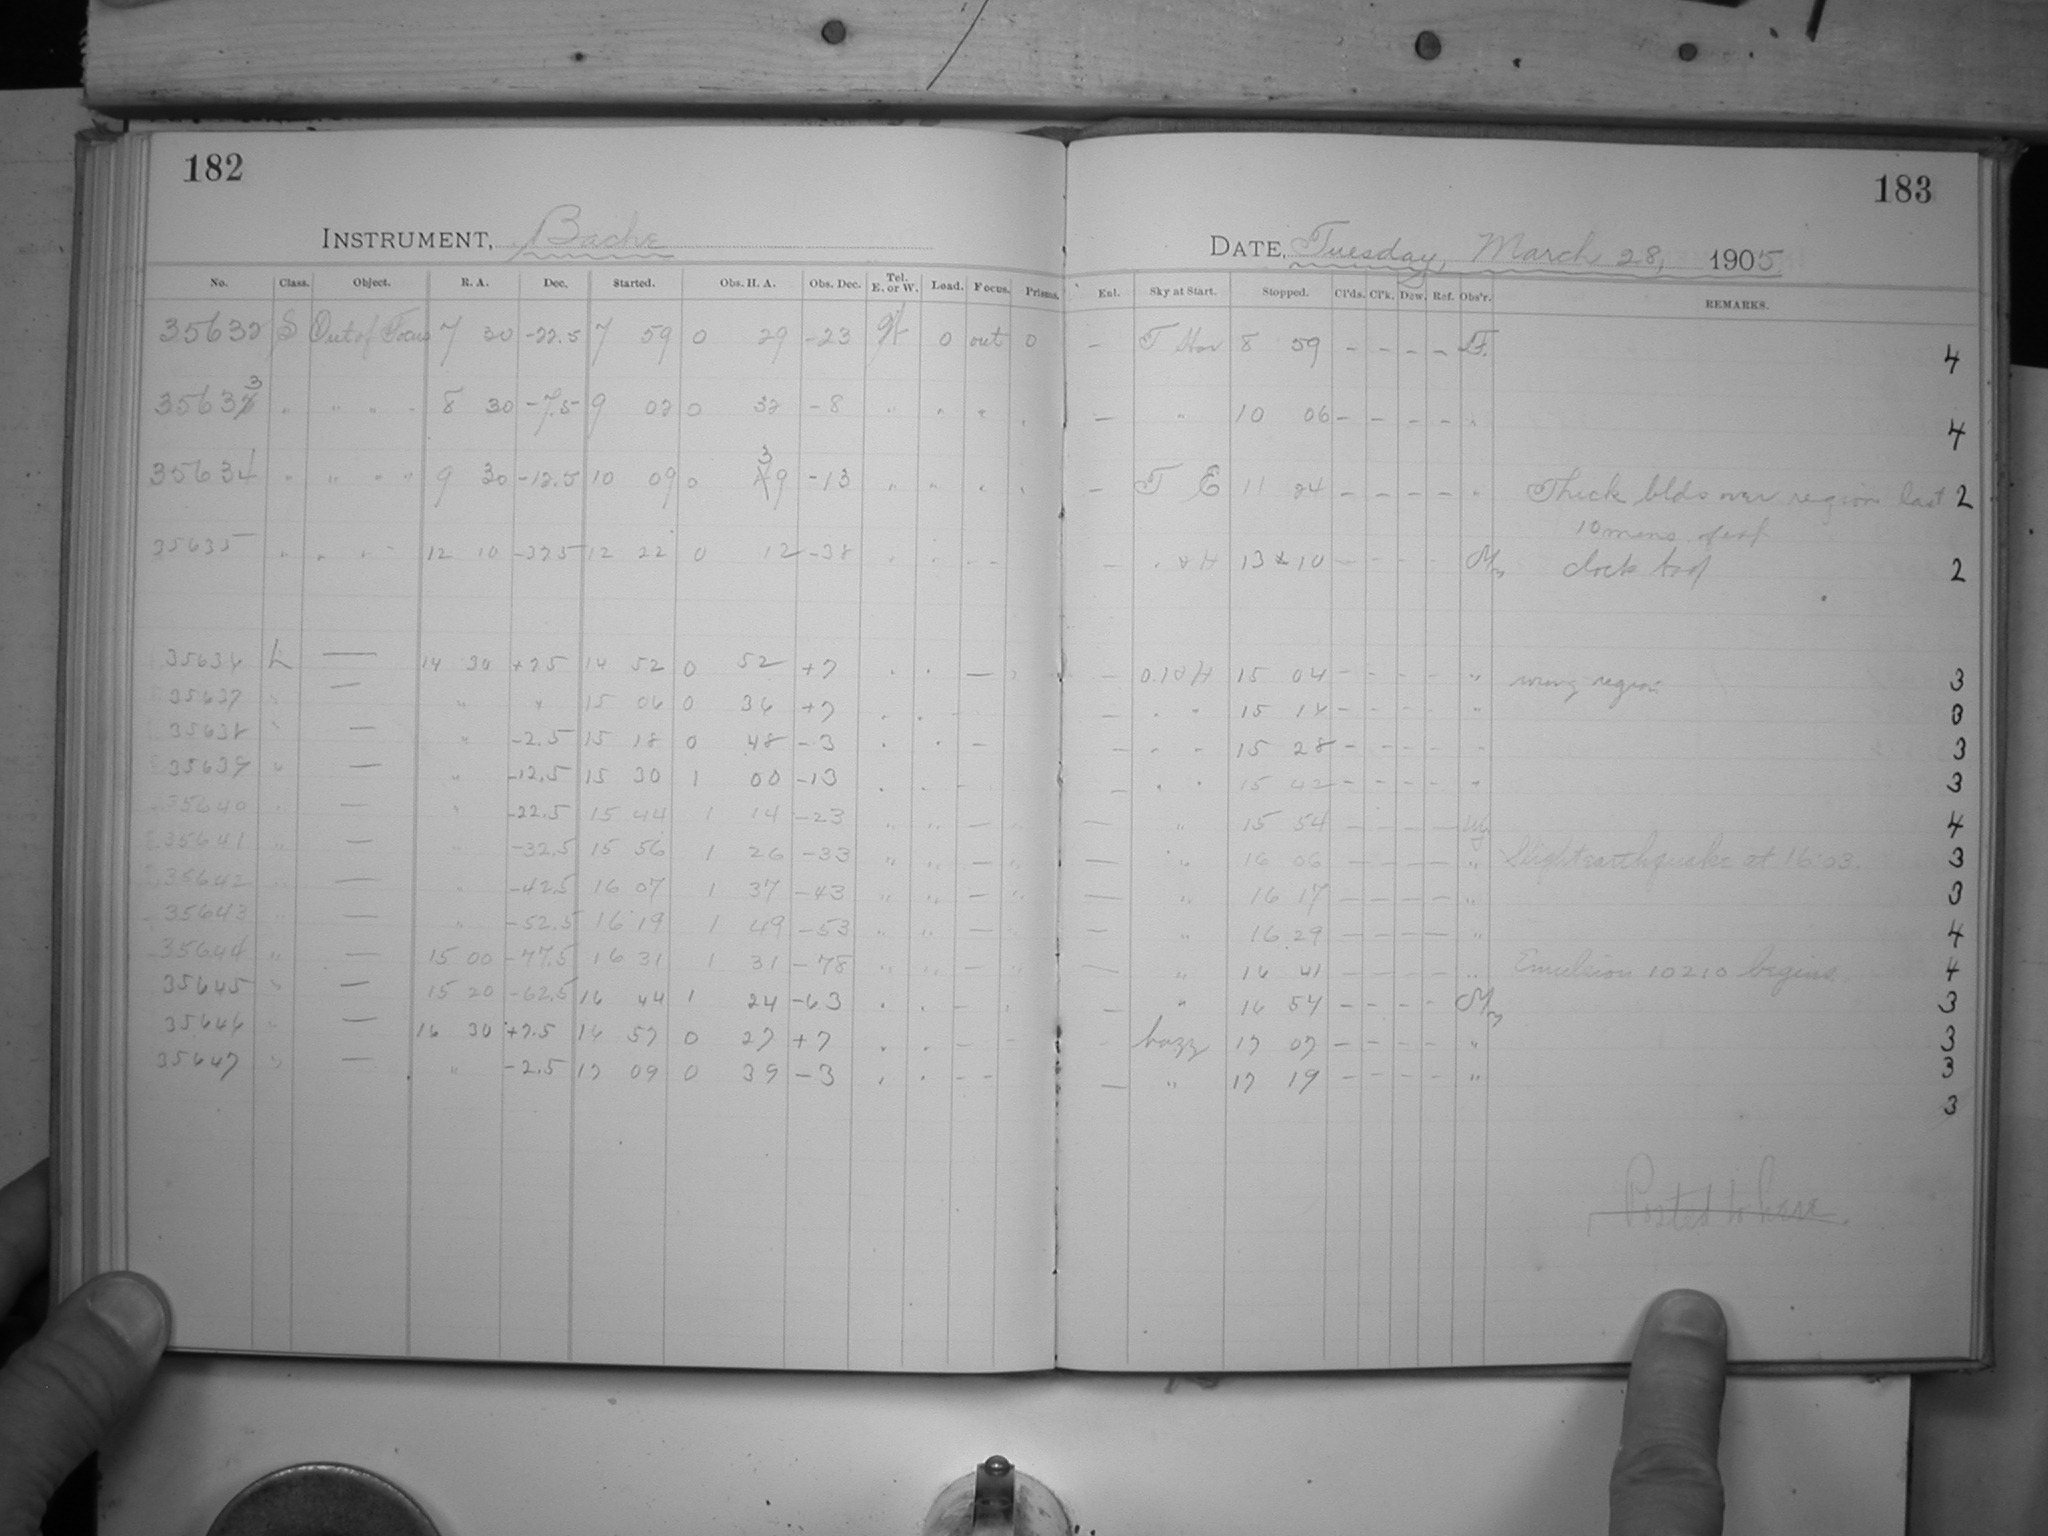 182
INSTRUMENT, Bache
No. Class. Object. R. A. Dec. Started. Obs. H. A. Obs. Dec. Tel. E. or W. Load. Focus. Prisms.
35632 S Out of Focus 7 30 -22.5 7 59 0 29 -23 W 0 out 0
35633 " " " " 8 30 -7.5 9 02 0 32 -8 " " "
35634 " " " " 9 30 -12.5 10 09 0 39 -13 " " "
35635 " " " " 12 10 -37.5 12 22 0 12 -38
35636 L — 14 30 +7.5 14 52 0 52 +7
35637 " — " " 15 06 0 36 +7
35638 " — " -2.5 15 18 0 48 -3
35639 " — " -12.5 15 30 1 00 -13
35640 " — " -22.5 15 44 1 14 -23 " " —
35641 " — " -32.5 15 56 1 26 -33 " " — "
35642 " — " -42.5 16 07 1 37 -43 " " — "
35643 " — " -52.5 16 19 1 49 -53 " " — "
35644 " — 15 00 -77.5 16 31 1 31 -78 " " — "
35645 " — 15 20 -62.5 16 44 1 24 -63
35646 " — 16 30 +7.5 16 57 0 27 +7
35647 " — " -2.5 17 09 0 39 -3
183
DATE, Tuesday, March 28, 1905
Ent. Sky at Start. Stopped. Cl'ds. Cl'k. Dew. Ref. Obs'r. REMARKS.
— 8 59 - - - - 4
— " 10 06 - - - - " 4
— T E 11 24 - - - - " Thick clds over region last 2
10 mins of exp
— 13 10 - - - - clock bad 2
— 15 04 - - - - " wrong region 3
— " " 15 18 - - - - " 3
— " " 15 28 - - - - " 3
— " " 15 42 - - - - " 3
— " 15 54 - - - - 4
— " 16 06 - - - - " Slight earthquake at 16:03. 3
— " 16 17 - - - - " 3
— " 16 29 - - - - " 4
— " 16 41 - - - - " Emulsion 10210 begins. 4
— " 16 54 - - - - 3
— hazy 17 07 - - - - " 3
— " 17 19 - - - - " 3
3
Posted to here.